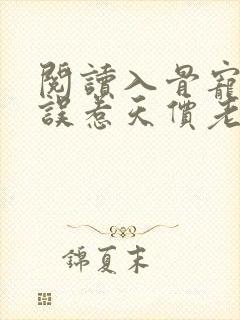 閱讀入骨寵
誤惹天價老
錦夏末